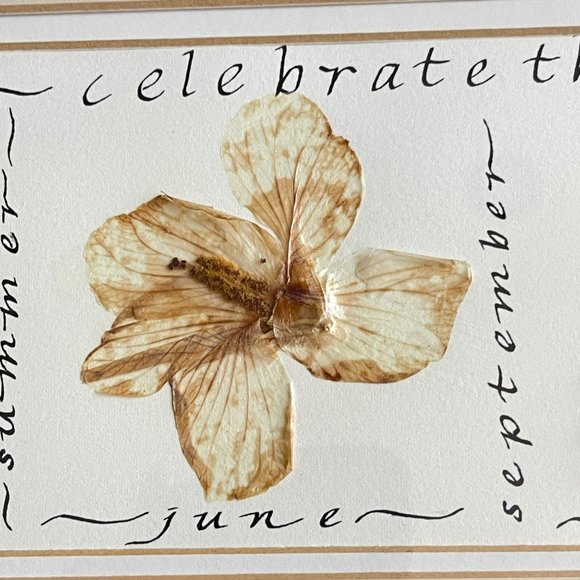 celebrate th
summer
september
june